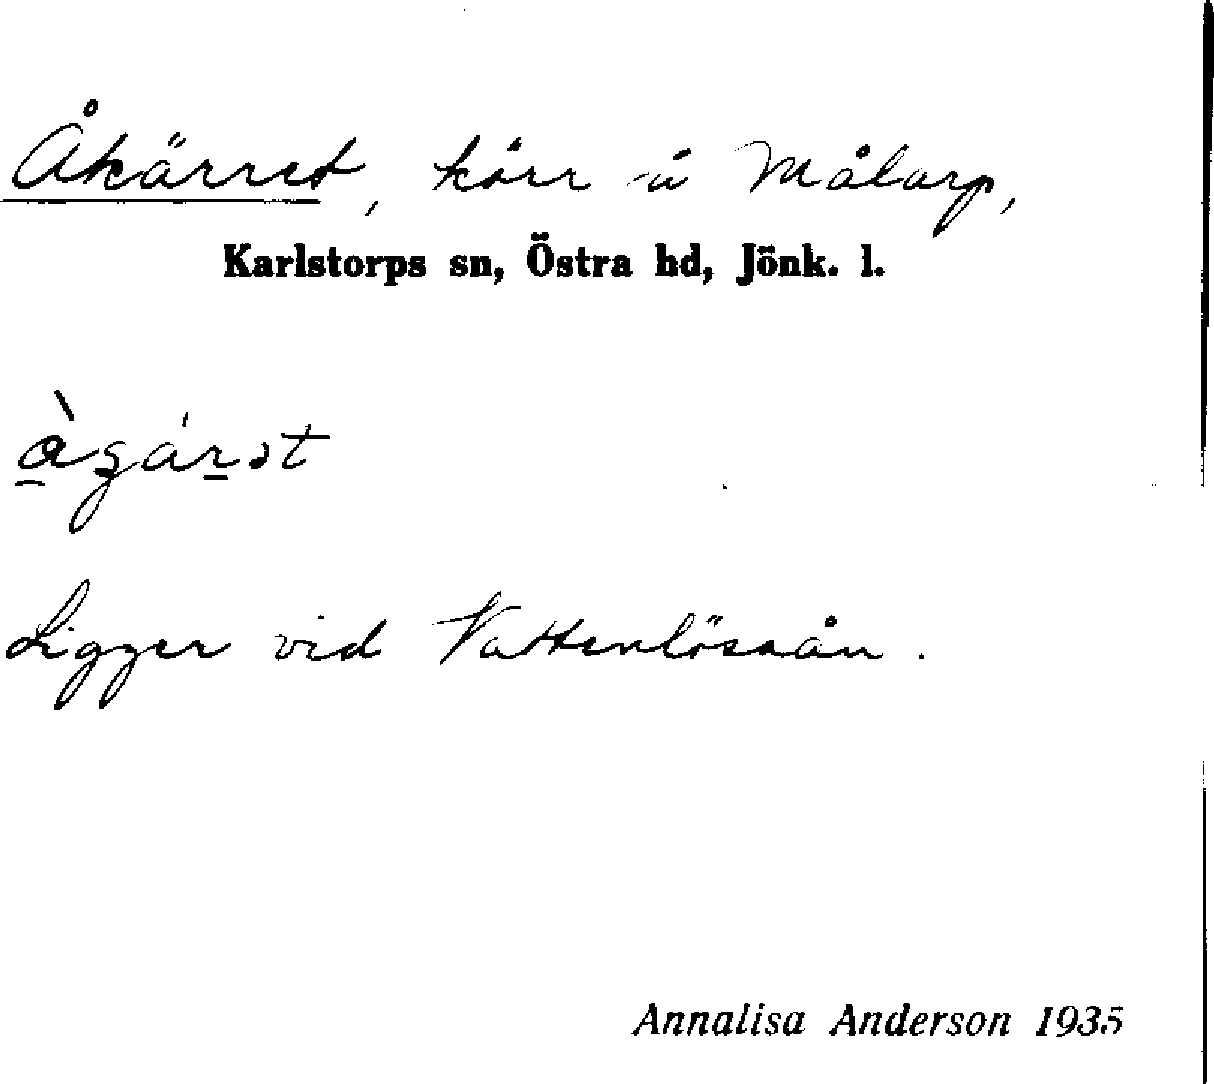 Åkärret, kärr å Målarp,
Karlstorps sn, Östra hd, Jönk. l.
Ligger vid Vattenlösaån.
Annalisa Anderson 1935